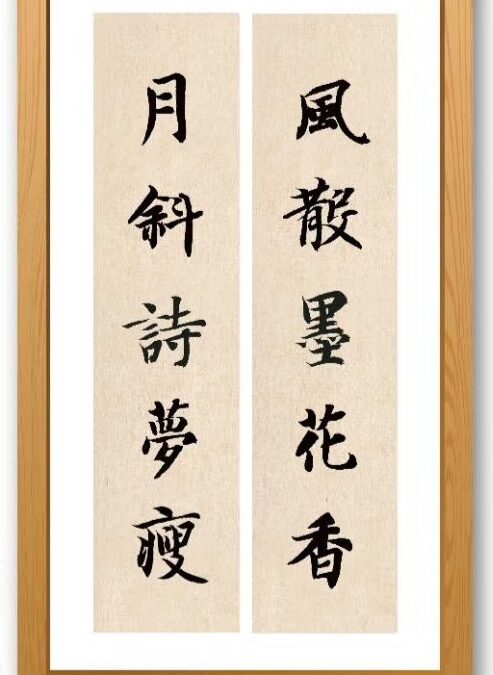 風散墨花香
月斜詩夢瘦